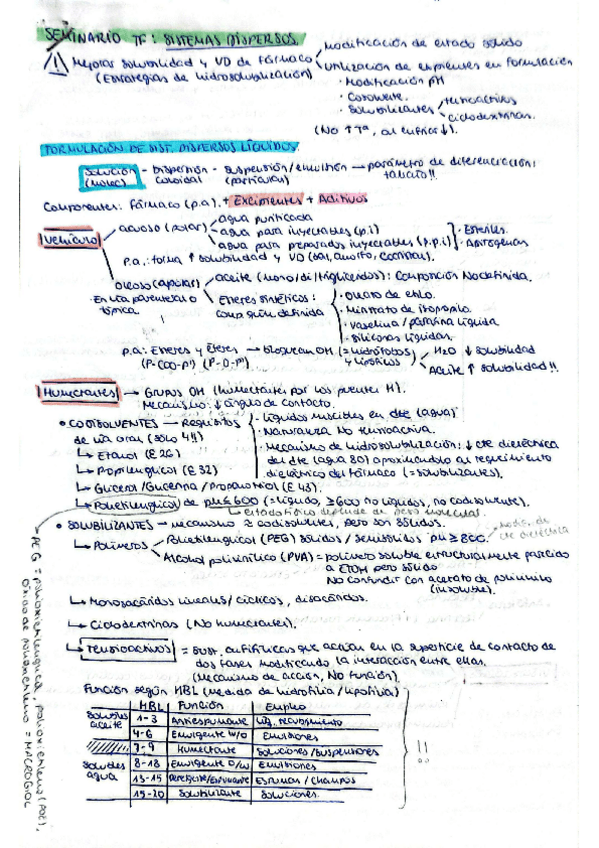 SEMINARIO TF: SISTEMAS DISPERSOS.
Mejorar solubilidad y VD de fármaco
(Estrategias de hidrosolubilización)
Modificación de estado sólido
Utilización de excipientes en formulación
· Modificación pH
· Cosolvente.
· Solubilizantes
tensioactivos
ciclodextrinas.
(No ↑Tª, al enfriar ↓).
FORMULACIÓN DE SIST. DISPERSOS LÍQUIDOS.
Solución - Dispersión - suspensión/emulsión → parámetro de diferenciación:
(molec) coloidal (partículas) tamaño!!
Componentes: Fármaco (p.a) + Excipientes + Aditivos
Vehículo
acuoso (polar)
agua purificada
agua para inyectables (p.i)
agua para preparados inyectables (p.p.i)
· Estériles.
· Apirógenas
p.a.: forma ↑ solubilidad y VD (sal,
oleoso (apolar)
· En vía parenteral o
tópica.
aceite (mono/di/triglicéridos): Composición No definida.
Ésteres sintéticos:
composición definida
· Oleato de etilo.
· Miristato de isopropilo.
· Vaselina/parafina líquida
· Siliconas líquidas.
p.a: Ésteres y Éteres → bloquean OH (=hidrófobos
(P-COO-P') (P-O-P') y lipófilos)
H2O ↓ solubilidad
Aceite ↑ solubilidad!!
Humectantes → Grupos OH (humectante por los puentes H).
Mecanismo: ↓ ángulo de contacto.
• CODISOLVENTES → Requisitos
de vía oral (sólo 4!!)
· Líquidos miscibles en dte (agua)
· Naturaleza No tensioactiva.
· Mecanismo de hidrosolubilización: ↓ cte dieléctrica
del dte (agua 80) aproximándolo al requerimiento
dieléctrico del fármaco (=solubilizantes).
↳ Etanol (E 26)
↳ Propilenglicol (E 32)
↳ Glicerol/Glicerina/Propanotriol (E 43).
↳ Polietilenglicol de pM ≤ 600 (=líquido, ≥600 no líquidos, no codisolvente).
estado físico depende de peso molecular.
• SOLUBILIZANTES → mecanismo ≈ codisolventes, pero son sólidos.
↳ Polímeros
Polietilenglicol (PEG) sólidos/semisólidos pM ≥ 800.
Modif. de
cte dieléctrica
Alcohol polivinílico (PVA) = polímero soluble estructuralmente parecido
a EtOH pero sólido
No confundir con acetato de polivinilo
(insoluble).
↳ Monosacáridos lineales/cíclicos, disacáridos.
↳ Ciclodextrinas (No humectantes).
↳ Tensioactivos = sust. anfifílicas que actúan en la superficie de contacto de
dos fases modificando la interacción entre ellas.
(Mecanismo de acción, No función).
Función según HBL (medida de hidrofilia/lipofilia)
HBL Función Empleo
Solubles aceite 1-3 Antiespumante
4-6 Emulgente w/o Emulsiones
7-9 Humectante Soluciones/suspensiones
Solubles agua 8-18 Emulgente o/w Emulsiones
13-15 Detergente/espumante Espumas/champús
15-20 Solubilizante Soluciones.
!!
PEG = polioxietilenglicol, polioxietileno (POE),
óxido de polietileno = MACROGOL